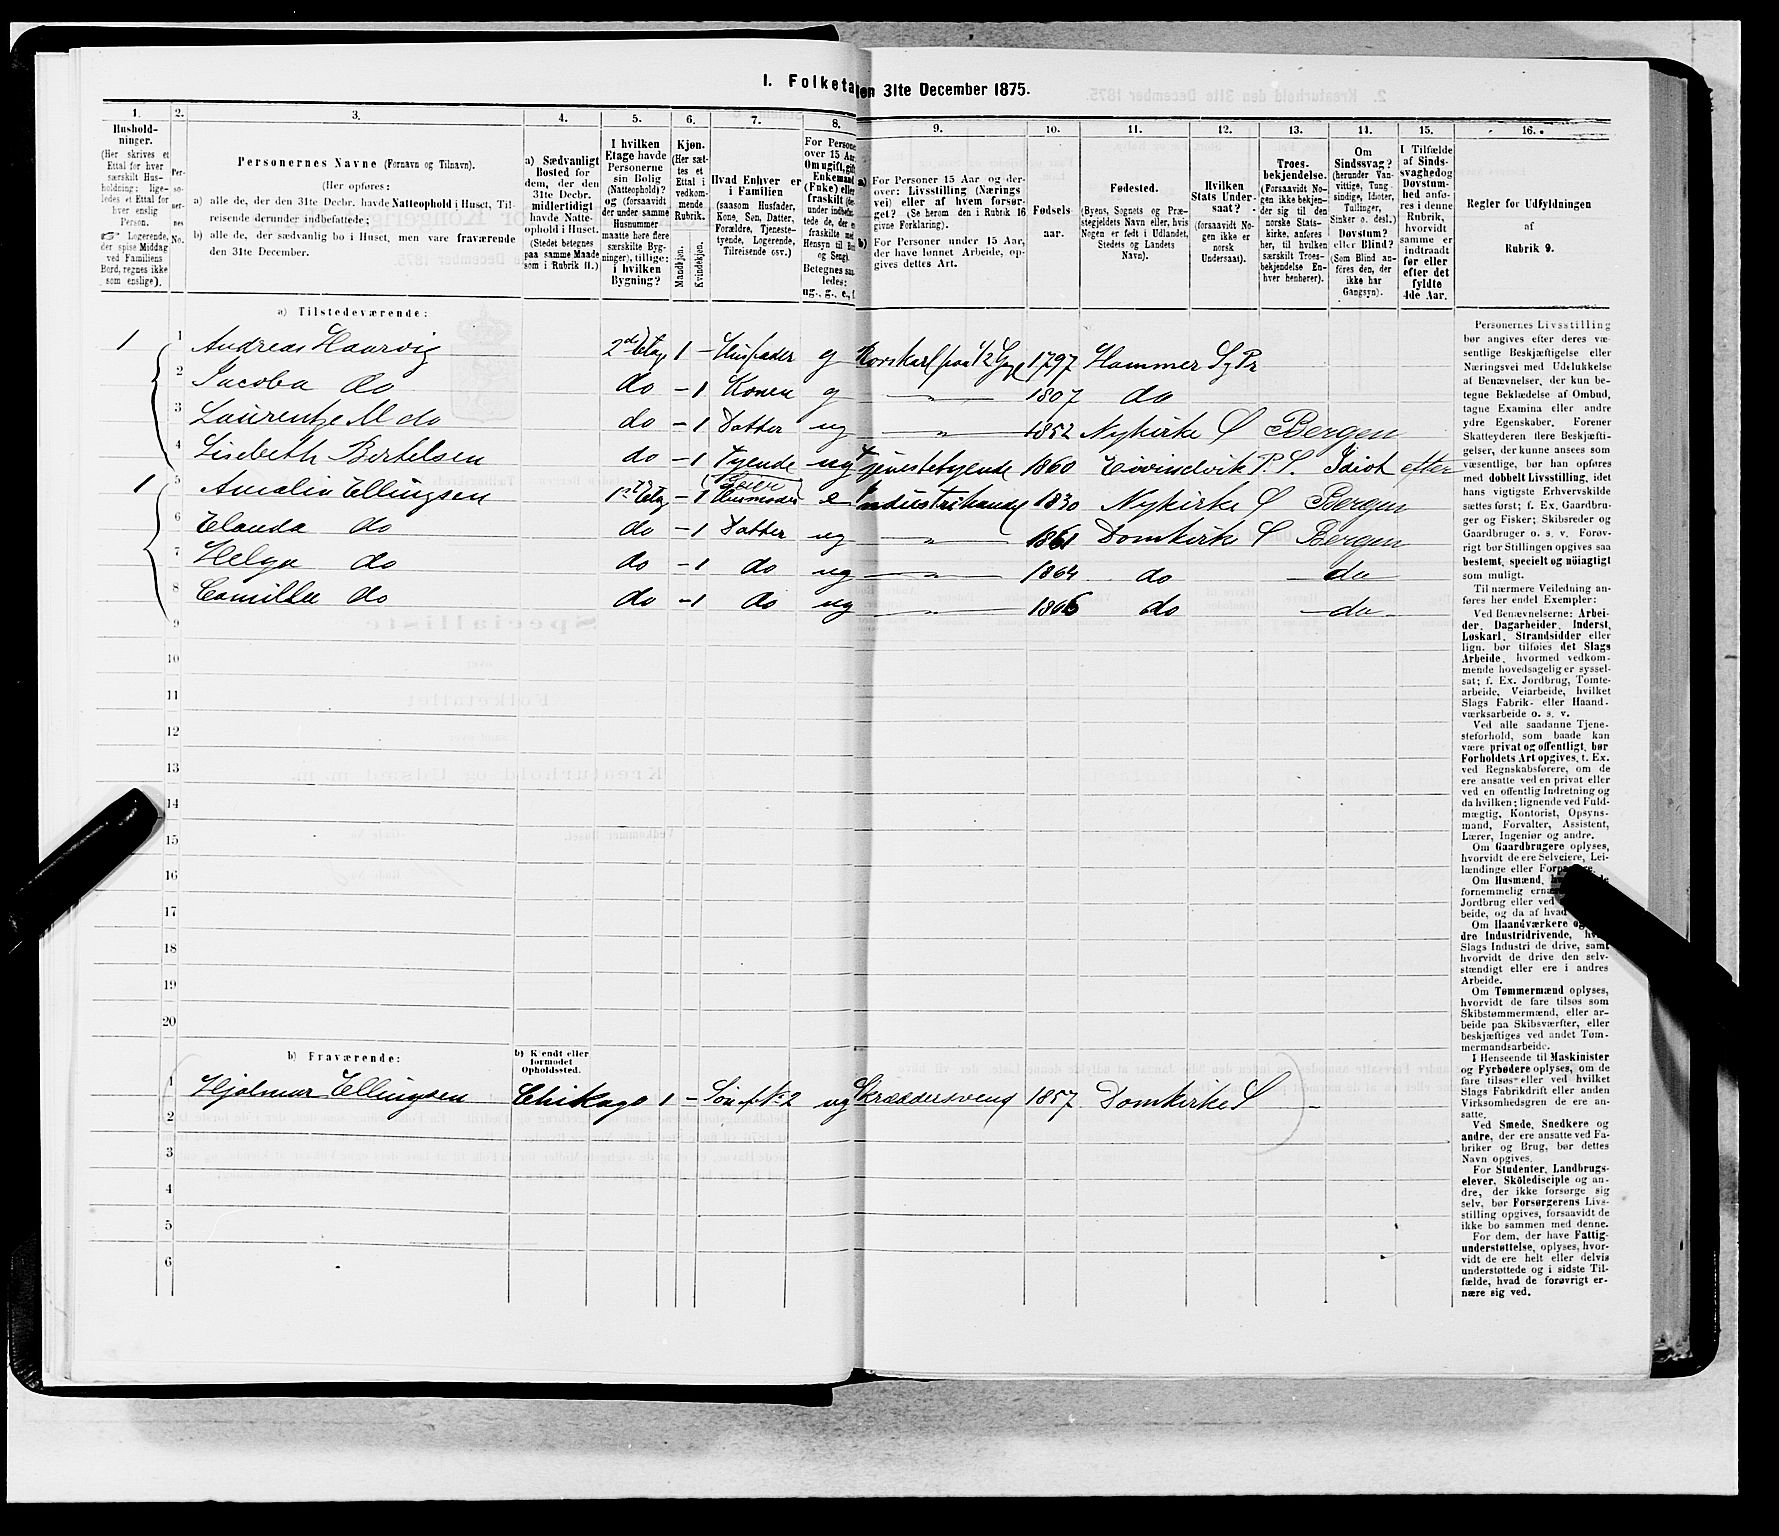 I. Folketal den 31te December 1875.
1. 2. 3. 4. 5. 6. 7. 8. 9. 10. 11. 12. 13. 14. 15. 16.
Hushold-
ninger.
(Her skrives et
Ettal for hver
særskilt Hus-
holdning; lige-
ledes et Ettal for
hver enslig
Person.
☞ Logerende,
der spise Middag
ved Familiens
Bord, regnes ikke
som enslige).
Per-
so-
ner-
nes
No.
Personernes Navne (Fornavn og Tilnavn).
(Her opføres:
a) alle de, der den 31te Decbr. havde Natteophold i Huset, Til-
reisende derunder indbefattede;
b) alle de, der sædvanlig bo i Huset, men vare fraværende
den 31te December.
a) Sædvanligt
Bosted for
dem, der den
31te Decbr.
midlertidigt
havde Natte-
ophold i Huset.
(Stedet betegnes
paa samme Maade
som i Rubrik 11.)
I hvilken
Etage havde
Personerne
sin Bolig
(Natteophold)?
og (forsaavidt
der under samme
Husnummer
maatte høre flere
særskilte Byg-
ninger), tillige:
i hvilken
Bygning?
Kjøn.
(Her sæt-
tes et
Ettal i
vedkom-
mende
Rubrik.
Mandkjøn.
Kvindekjøn.
Hvad Enhver er
i Familien
(saasom Husfader,
Kone, Søn, Datter,
Forældre, Tjeneste-
tyende, Logerende,
Tilreisende osv.)
For Persone
over 15 Aar
Om ugift, gift,
Enkemand
(Enke) eller
fraskilt
Betegnes saa-
ledes:
ug., g., e., f.
a) For Personer 15 Aar og der-
over: Livsstilling (Nærings
vei) eller af hvem forsør-
get? (Se herom den i Rubrik 16
givne Forklaring).
b) For Personer under 15 Aar,
der have lønnet Arbeide, op-
gives dettes Art.
Fødsels
aar.
Fødested.
(Byens, Sognets og Præ-
stegjeldets Navn eller, hvis
Nogen er født i Udlandet,
Stedets og Landets
Navn).
Hvilken
Stats Under-
saat?
(forsaavidt No-
gen ikke er
norsk
Undersaat).
Troes-
bekjendelse.
(Forsaavidt No-
gen ikke bekjen-
der sig til den
norske Stats-
kirke, anføres
her, til hvilken
særskilt Troes-
bekjendelse En-
hver henhører).
Om
Sindssvag?
(herunder Van-
vittige, Tung-
sindige, Idioter,
Tullinger,
Sinker o. desl.)
Døvstum?
eller Blind?
(Som Blind an-
føres den, der
ikke har
Gangsyn).
I Tilfælde
af Sinds-
svaghed og
Døvstum-
hed anfø-
res i denne
Rubrik,
hvorvidt
samme er
indtraadt
før eller
efter det
fyldte
4de Aar.
Regler for Udfyldningen
af
Rubrik 9.
a) Tilstedeværende:
1 1 Andreas Haarvig 2den Etag 1 – Husfader g 1797 Hammer S, Pr
2 Jacoba do do – 1 Konen g – " – 1807 do
3 Laurentze M do do – 1 Datter ug – " – 1852 Nykirke S Bergen
4 Lisebeth Bertelsen do – 1 Tyende ug Tjenestetyende 1860 Eivindvik P. S. Idiot efter
1 5 Amalia Ellingsen 1ste Etag – 1 Husmoder e Industrihandel 1830 Nykirke S Bergen
6 Elauda do do – 1 Datter ug – " – 1861 Domkirke S Bergen
7 Helga do do – 1 do ug – " – 1864 do do
8 Camilla do do – 1 do ug – " – 1866 do do
9
10
11
12
13
14
15
16
17
18
19
20
b) Fraværende:
b) Kjendt eller
formodet
Opholdssted.
1 Hjalmar Ellingsen Chikago 1 – Søn af No 2 ug Skræddersvend 1857 Domkirke S –
2
3
4
5
6
Personernes Livsstilling
bør angives efter deres væ-
sentlige Beskjæftigelse eller
Næringsvei med Udelukkelse
af Benævnelser, der kun be-
tegne Beklædelse af Ombud,
tagne Examina eller andre
ydre Egenskaber. Forener
Skatteyderen flere Beskjæfti-
gelser, der kunne ansees som
væsentlige, bør han opføres
med dobbelt Livsstilling, idet
hans vigtigste Erhvervskilde
sættes først; f. Ex. Gaardbru-
ger og Fisker; Skibsreder og
Gaardbruger o. s. v. Forøv-
rigt bør Stillingen opgives saa
bestemt, specielt og nöiagtigt
som muligt.
Til nærmere Veiledning an-
føres her endel Exempler:
Ved Benævnelserne: Arbei-
der, Dagarbeider, Inderst,
Løskarl, Strandsidder eller
lign. bør tilføies det Slags
Arbeide, hvormed vedkom-
mende hovedsagelig er syssel-
sat; f. Ex. Jordbrug, Tomte-
arbeide, Veiarbeide, hvilket
Slags Fabrik- eller Haand-
værksarbeide o. s. v.
Ved alle saadanne Tjene-
steforhold, som baade kan
være privat og offentligt, bør
Forholdets Art opgives, t. Ex.
ved Regnskabsførere, om de
ere ansatte ved en privat eller
ved en offentlig Indretning og
da hvilken; lignende ved Fuld-
mægtig, Kontorist, Opsyns-
mand, Forvalter, Assistent,
Lærer, Ingeniør og andre.
Om Gaardbrugere oplyses,
hvorvidt de ere Selveiere, Lei-
lændinge eller
Om Husmænd,
fornemmelig
Jordbrug eller ved
beide, og da af hvad
Om Haandværkere og
dre Industridrivende,
Slags Industri de drive, samt
hvorvidt de drive den selv-
stændigt eller ere i andres
Arbeide.
Om Tømmermænd oplyses,
hvorvidt de fare tilsøs som
Skibstømmermænd, eller ar-
beide paa Skibsværfter, eller
beskjæftiges ved andet Tøm-
mermandsarbeide.
I Henseende til Maskinister
og Fyrbødere oplyses, om de
fare tilsøs eller ved hvilket
Slags Fabrikdrift eller anden
Virksomhedsgren de ere an-
satte.
Ved Smede, Snedkere og
andre, der ere ansatte ved Fa-
briker og Brug, bør dettes
Navn opgives.
For Studenter, Landbrugs-
elever, Skoledisciple og an-
dre, der ikke forsørge sig
selv, bør Forsørgerens Livs-
stilling opgives, forsaavidt de
ikke bo sammen med denne.
For dem, der have Fattig-
understøttelse, oplyses, hvor-
vidt de ere helt eller delvis
understøttede og i sidste Til-
fælde, hvad de forøvrigt er-
nære sig ved.